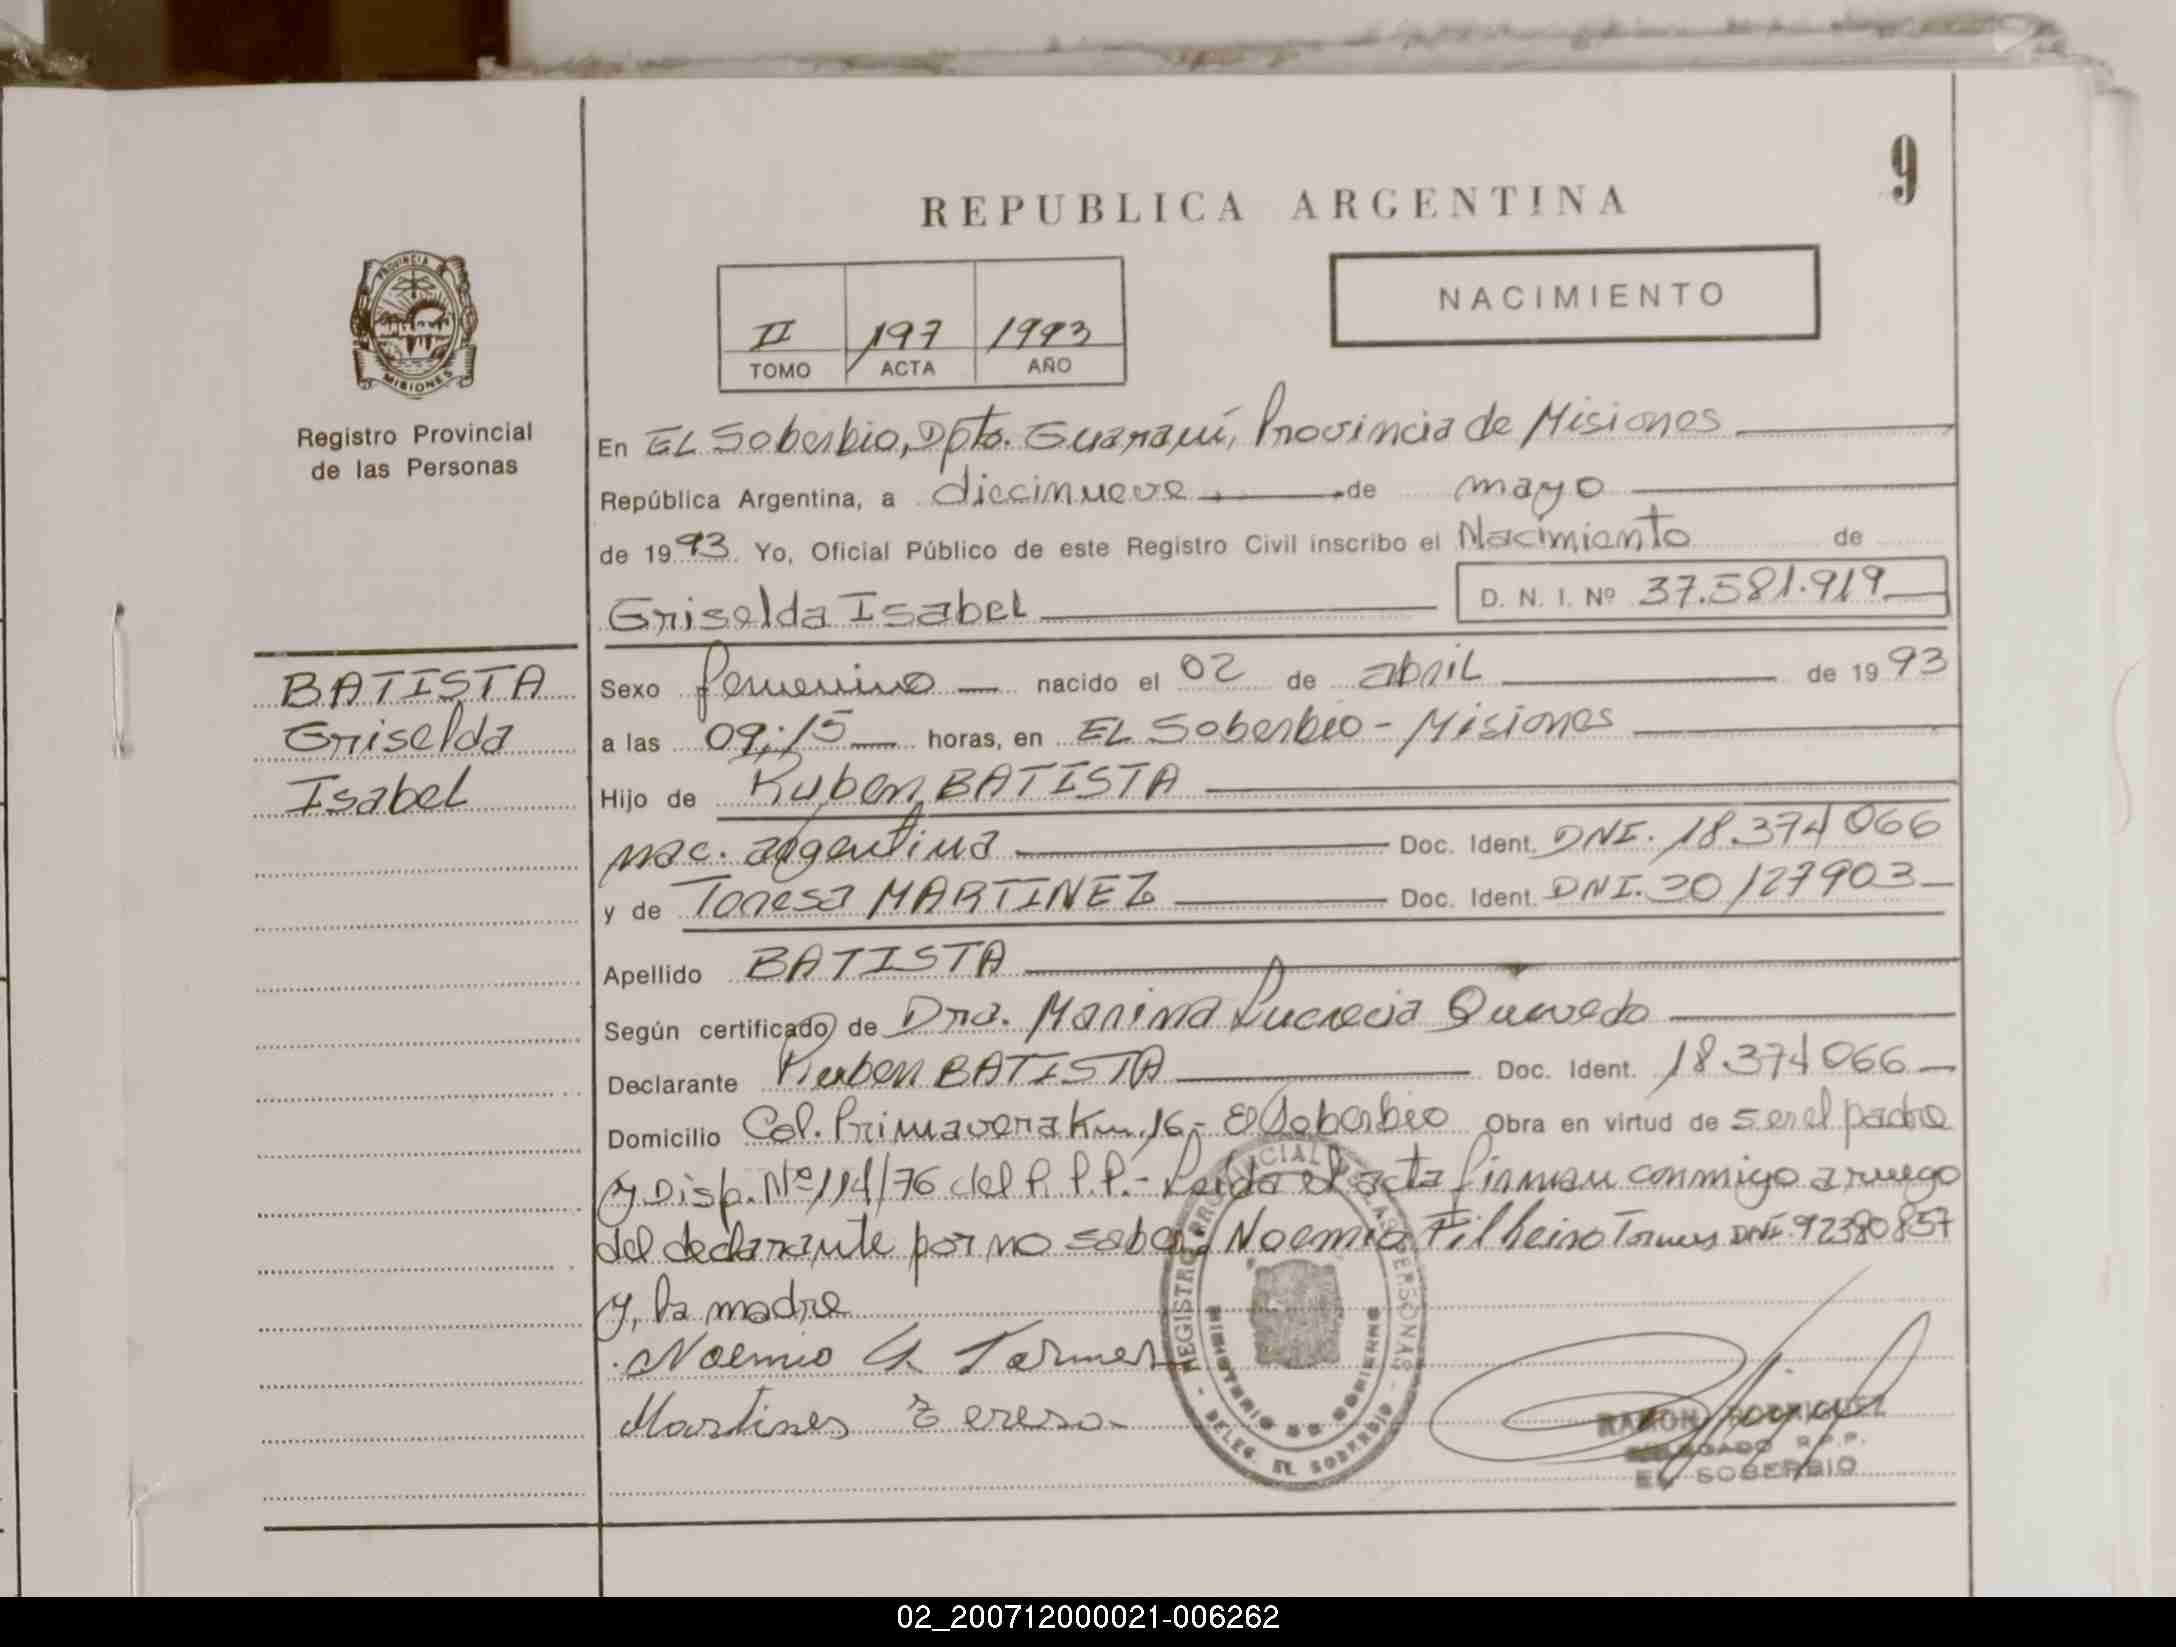 9
REPUBLICA ARGENTINA
NACIMIENTO
II 197 1993
TOMO ACTA AÑO
PROVINCIA DE
MISIONES
Registro Provincial
de las Personas
BATISTA
Griselda
Isabel
En EL Soberbio, Dpto. Guaraní, Provincia de Misiones
República Argentina, a diecinueve de mayo
de 1993. Yo, Oficial Público de este Registro Civil inscribo el Nacimiento de
Griselda Isabel D. N. I. Nº 37.581.919
Sexo femenino nacido el 02 de abril de 1993
a las 09:15 horas, en EL Soberbio - Misiones
Hijo de Ruben BATISTA
nac. argentina Doc. Ident. DNI. 18.374066
y de Teresa MARTINEZ Doc. Ident. DNI. 30127903
Apellido BATISTA
Según certificado de Dra. Marina Lucrecia Quevedo
Declarante Ruben BATISTA Doc. Ident. 18.374066
Domicilio Col. Primavera Km. 16 - El Soberbio Obra en virtud de ser el padre
y Disp. Nº 114/76 del R.P.P. - Leida el acta firman conmigo a ruego
del declarante por no saber, Noemio Filheiro Tormes DNI. 92380857
y, la madre
Noemio Tormes
Martines Teresa
REGISTRO PROVINCIAL DE LAS PERSONAS
MINISTERIO DE GOBIERNO
- DELEG. EL SOBERBIO -
RAMON RODRIGUEZ
DELEGADO R.P.P.
EL SOBERBIO
02_200712000021-006262